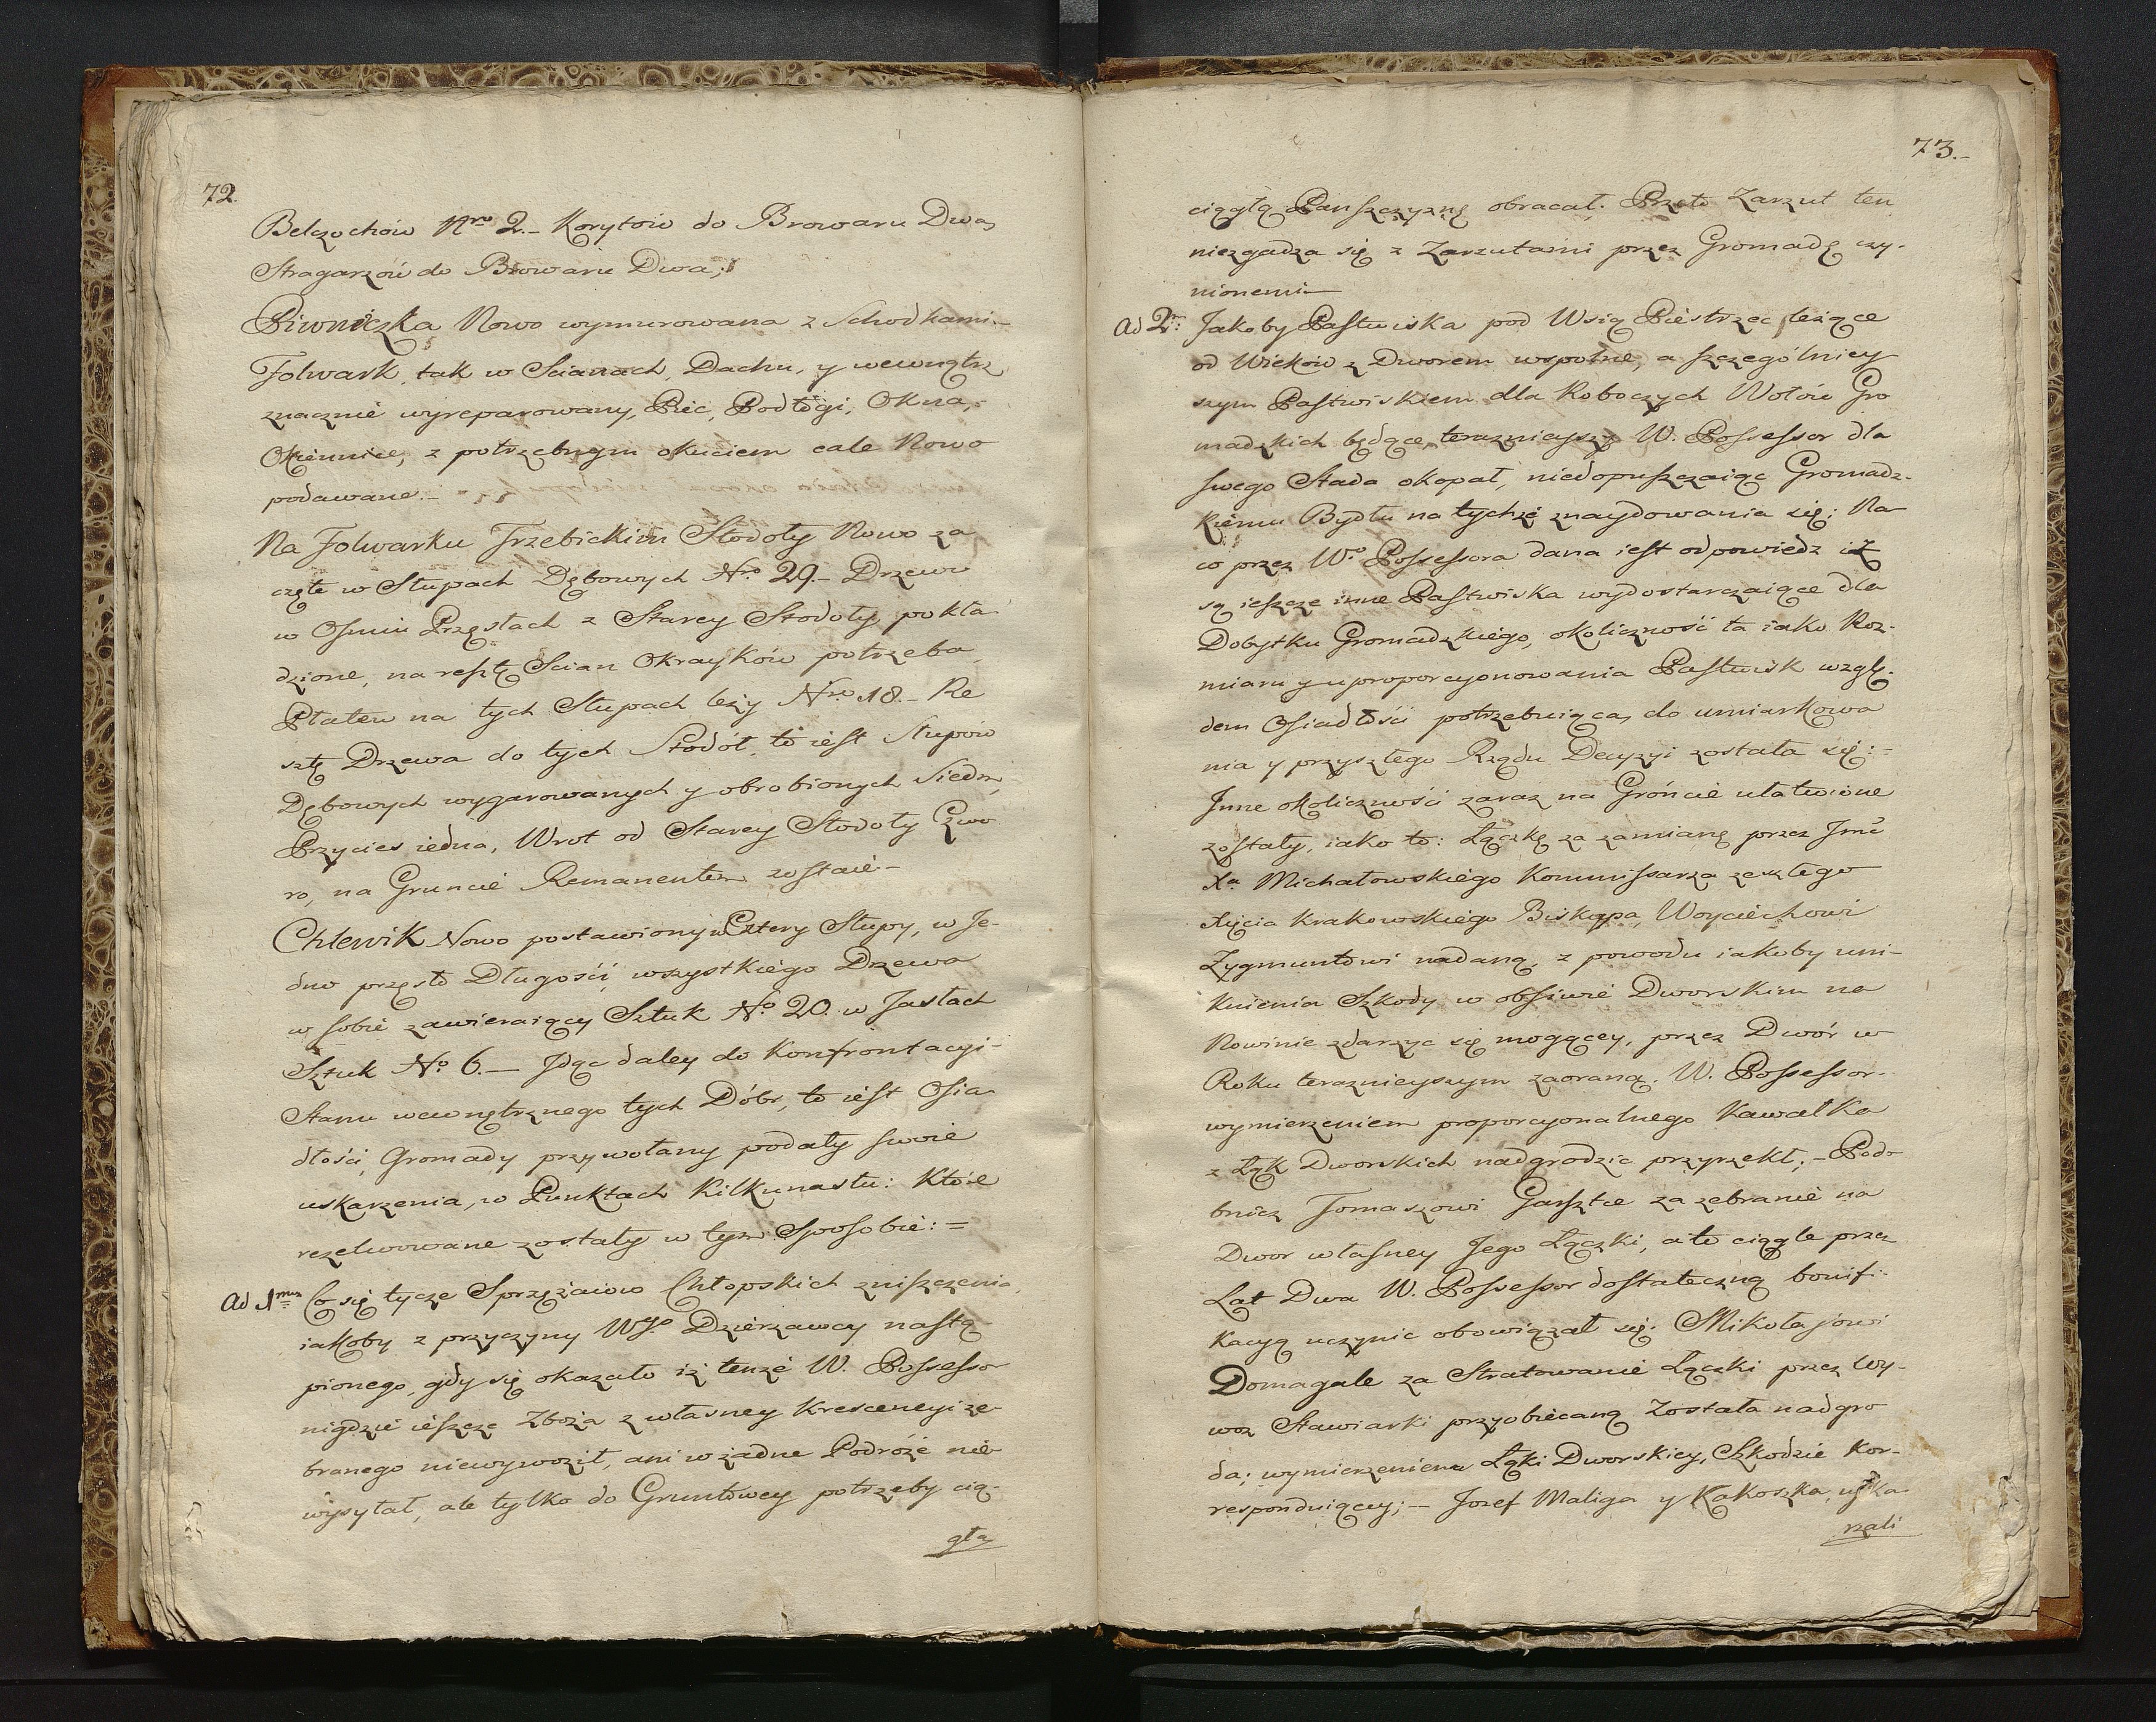 72.
Belczochów Nro 2.- Korytów do Browaru Dwa,
Stragarzów do Browaru Dwa;
Piwniczka Nowo wymurowana z Schodkami.-
Folwark, tak w Scianach, Dachu, y wewnątrz
znacznie wyreparowany, Piec, Podłogi, Okna,
Okiennice, z potrzebnym okuciem cale Nowo
podawane.-
Na Folwarku Trzebickim Stodoły Nowo za
częte w Słupach Dębowych No 29.- Drzewo
w Osmiu Przęsłach z Starey Stodoły pokła
dzione, na resztę Scian Okrayków potrzeba,
Płatew na tych Słupach leży Nro 18.- Re
sztę Drzewa do tych Stodół, to iest Słupów
Dębowych wygarowanych y obrobionych Siedm,
Przycies iedna, Wrot od Starey Stodoły Czwo
ro, na Gruncie Remanentem zostaie-
Chlewik Nowo postawiony w Cztery Słupy, w Je-
dno przęsło Długości, wszystkiego Drzewa
w sobie zawieraiący Sztuk No 20. w Jasłach
Sztuk No 6.- Jdąc daley do Konfrontacyi-
Stanu wewnętrznego tych Dóbr, to iest Osia
dłości, Gromady przywołany podały swoie
uskarzenia, w Punktach Kilkunastu: Które
rezelwowane zostały w tym Sposobie: =
Ad 1mum Co się tycze Sprzężaiow Chłopskich zniszczenia,
iakoby z przyczyny WJo Dzierzawcy nastą
pionego, gdy się okazało iż tenże W. Possessor
nigdzie ieszcze Zboża z własney Krescencyi ze-
branego niewywoził, ani w żadne Podróże nie
wysyłał, ale tylko do Gruntowey potrzeby cią-
głą
73.-
ciągłą Panszczyznę obracał. Przeto Zarzut ten
niezgadza się z Zarzutami przez Gromadę czy-
nionemi-
Ad 2m: Jakoby Pastwiska pod Wsią Piestrzec leżące
od Wieków z Dworem wspolne, a szczególniey
szym Pastwiskiem dla Roboczych Wołów Gro
madzkich będące, teraznieyszy W. Possessor dla
swego Stada okopał, niedopuszczaiąc Gromadz-
kiemu Bydłu na tychże znaydowania się: Na
co przez Wo Possessora dana iest odpowiedz iż
są ieszcze inne Pastwiska wydostarczaiące dla
Dobytku Gromadzkiego, okoliczność ta iako Roz-
miaru y uproporcyonowania Pastwisk wzglę-
dem Osiadłości potrzebuiąca, do umiarkowa
nia y przyszłego Rządu Decyzyi została się:-
Jnne okoliczności zaraz na Gróńcie ułatwione
zostały, iako to: Łączkę za zamianę przez Jmć
Xa Michałowskiego Kommissarza zeszłego
Xięcia Krakowskiego Biskupa, Woyciechowi
Zygmuntowi nadaną, z powodu iakoby uni-
knienia Szkody w obsiwie Dworskim na
Nowinie zdarzyc się mogącey, przez Dwór w
Roku teraznieyszym zaoraną. W. Possessor-
wymierzeniem proporcyonalnego Kawałka
z Łąk Dworskich nadgrodzic przyrzekł;- Podo
bnież Tomaszowi Garsztce za zebranie na
Dwor własney Jego Łączki, a to ciągle przez
Lat Dwa W. Possessor dostateczną bonifi-
kacyą uczynic obowiązał się. Mikołajowi
Domagale za Stratowanie Łączki przez Wy-
woz Stawiarki przyobiecaną Została nadgro
da; wymierzeniem Łąki Dworskiey, Szkodzie Kor-
responduiącey;- Jozef Maliga y Kakoszka, uska
rzali